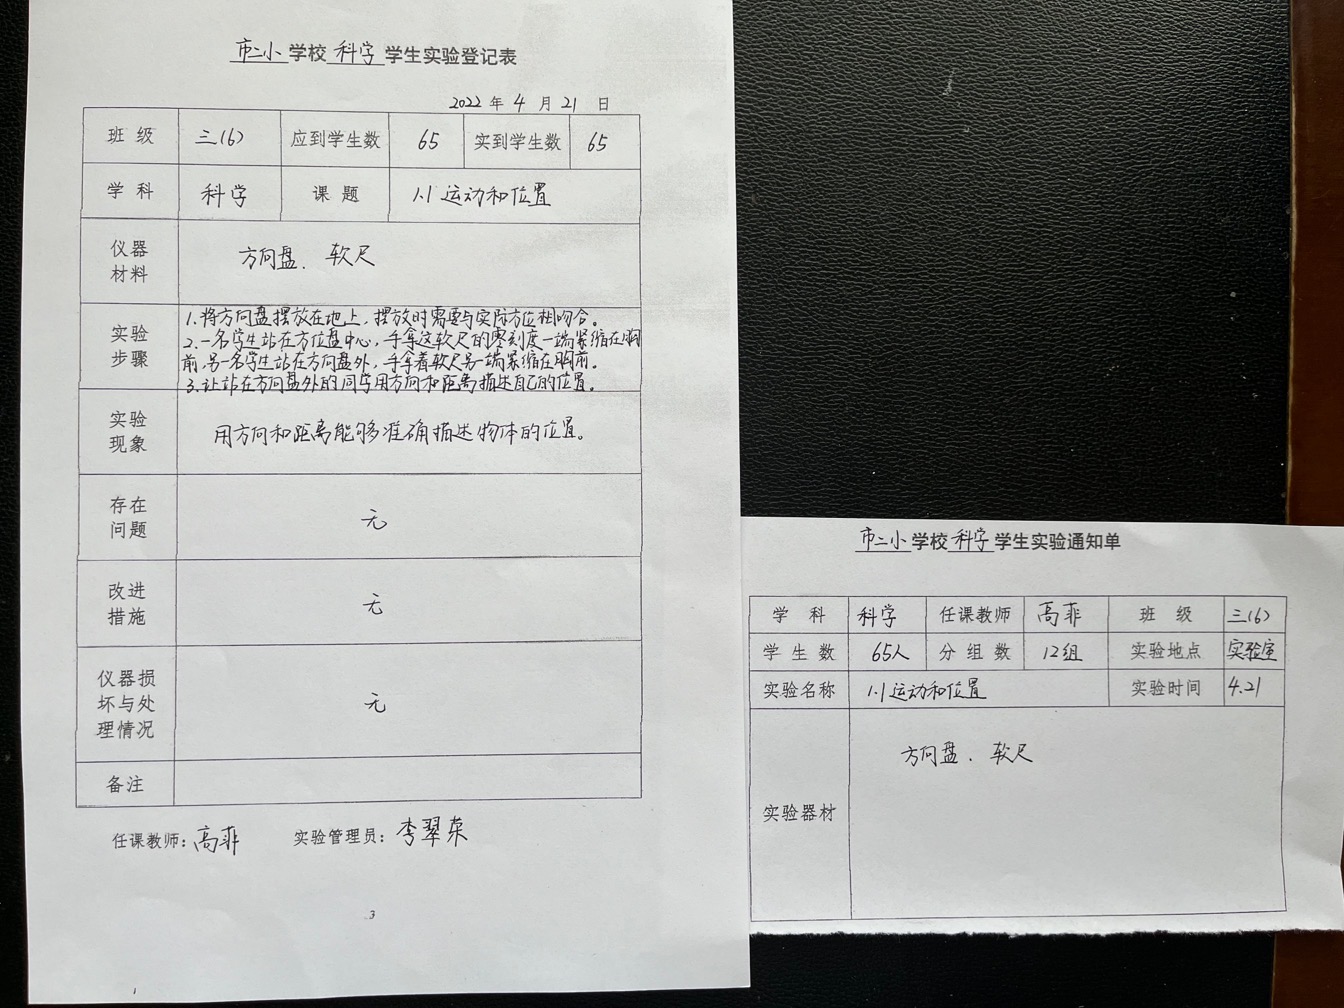 市二小学校科学学生实验登记表
2022年4月21日
班级 三(6) 应到学生数 65 实到学生数 65
学科 科学 课题 1.1运动和位置
仪器
材料
方向盘、软尺
实验
步骤
1.将方向盘摆放在地上，摆放时需要与实际方位相吻合。
2.一名学生站在方位盘中心，手拿这软尺的零刻度一端紧缩在胸
前，另一名学生站在方向盘外，手拿着软尺另一端紧缩在胸前。
3.让站在方向盘外的同学用方向和距离描述自己的位置。
实验
现象
用方向和距离能够准确描述物体的位置。
存在
问题
无
改进
措施
无
仪器损
坏与处
理情况
无
备注
任课教师：高菲 实验管理员：李翠荣
3
市二小学校科学学生实验通知单
学科 科学 任课教师 高菲 班级 三(6)
学生数 65人 分组数 12组 实验地点 实验室
实验名称 1.1运动和位置 实验时间 4.21
实验器材
方向盘、软尺